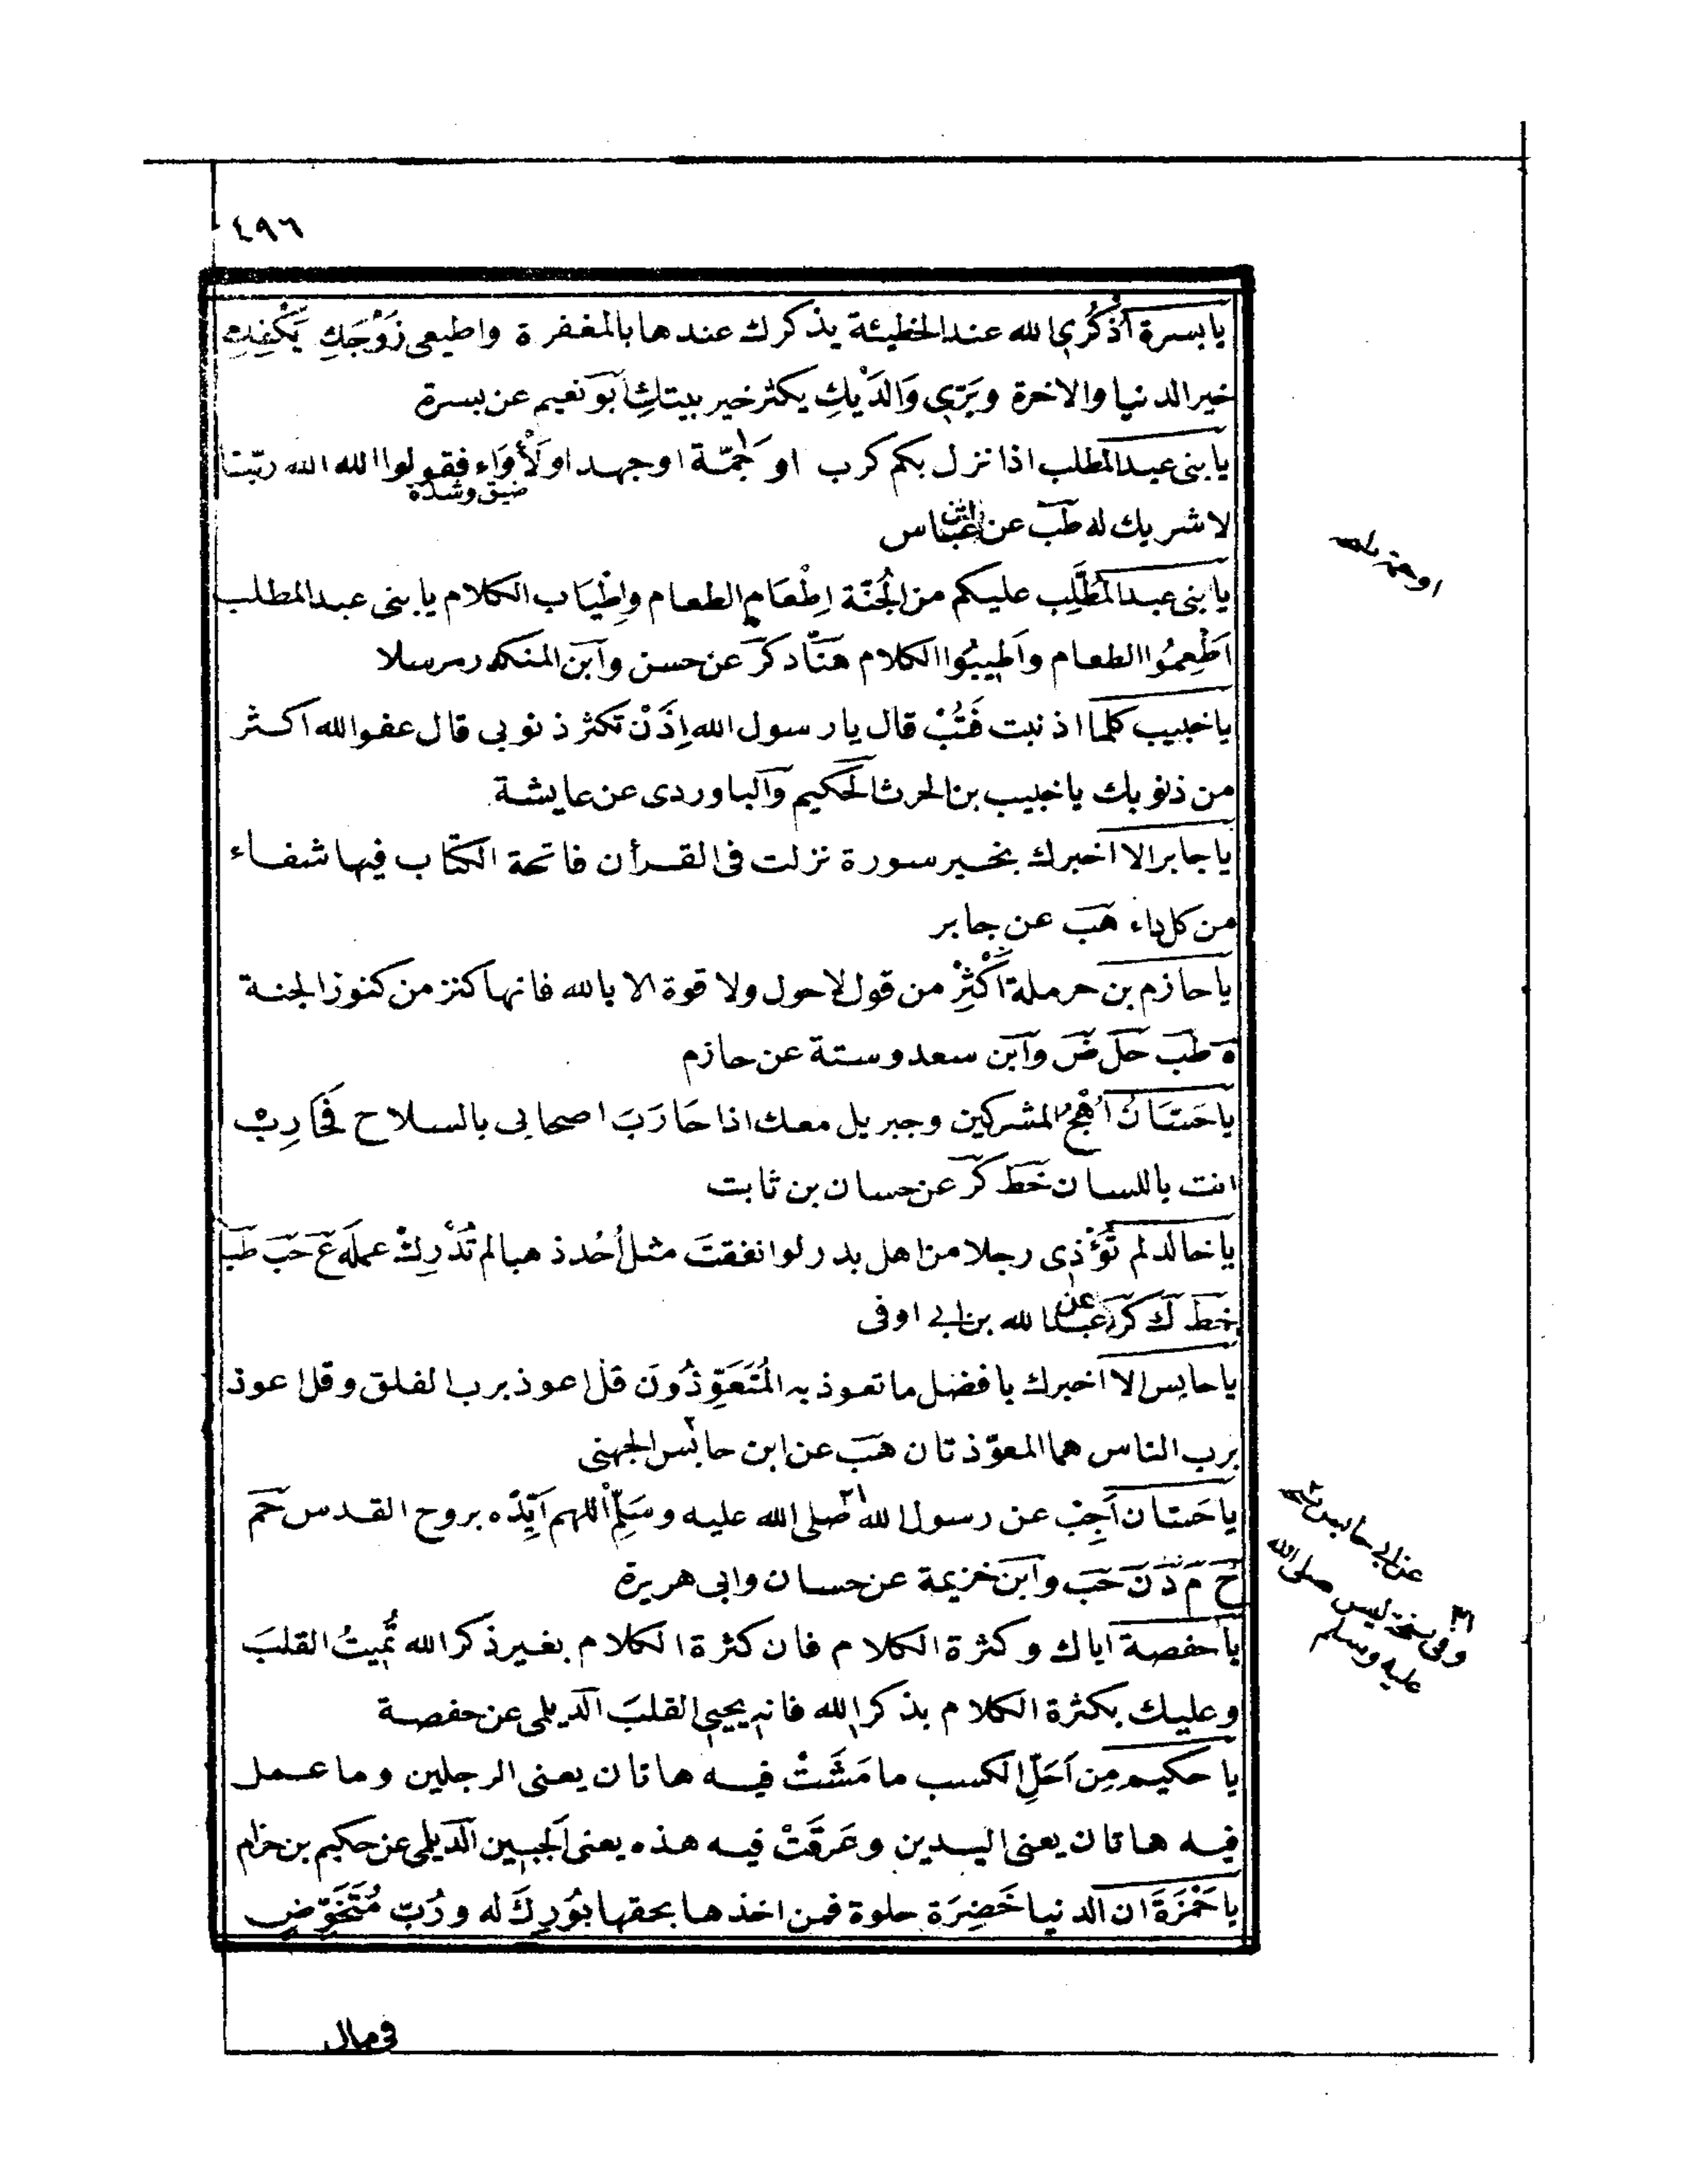 ٤٩٦
يا بسرة اُذْكُرِي الله عند الخطيئة يذكرك عندها بالمغفرة واطيعى زَوْجَكِ يَكْفِكِ
خير الدنيا والاخرة وبَرِّي وَالِدَيْكِ يكثر خير بيتكِ ابو نعيم عن بسرة
يا بنى عبد المطلب اذا نزل بكم كرب او جَمَّة ا او جهد او لَأْوَاء فقولوا الله الله ربّنا
ضيق وشدة
لا شريك له طب عن ابن عباس
او حمة
يا بنى عبد المُطَّلِب عليكم من الجُنّة اِطْعَام الطعام واِطْيَاب الكلام يا بنى عبد المطلب
اَطْعِمُوا الطعام واَطِيبُوا الكلام هنّاد كر عن حسن وابن المنكدر مرسلا
يا خبيب كلما اذنبت فَتُبْ قال يا رسول الله اِذَنْ تكثر ذنوبى قال عفو الله اكثر
من ذنوبك يا خبيب بن الحرث الحكيم والباوردى عن عايشة
يا جابر الا اخبرك بخير سورة نزلت فى القرأن فاتحة الكتاب فيها شفاء
من كل داء هب عن جابر
يا حازم بن حرملة اَكْثِرْ من قول لا حول ولا قوة الا بالله فانها كنز من كنوز الجنة
ه طب حل ض وابن سعد وستة عن حازم
يا حَسَّانُ اُهْجُ المشركين وجبريل معك اذا حَارَبَ اصحابى بالسلاح فَحَارِبْ
انت باللسان خط كر عن حسان بن ثابت
يا خالد لم تُؤْذِى رجلا من اهل بدر لو انفقتَ مثل اُحُد ذهبا لم تُدْرِكْ عمله ع حب طب
خط ك كر عن عبد الله بن ابى اوفى
يا حابس الا اخبرك بافضل ما تعوذ به المُتَعَوِّذُونَ قل اعوذ برب الفلق وقل اعوذ
برب الناس هما المعوّذتان هب عن ابن حابس ٢ الجهنى
عن ابى حابس
يا حَسَّان اَجِبْ عن رسول الله ٢١ صلى الله عليه وسَلِّم اللهم اَيِّدْه بروح القدس حم
خ م د ن حب وابن خزيمة عن حسان وابى هريرة
وفى نسخة ليس صلى الله
عليه وسلم
يا حفصة اياك وكثرة الكلام فان كثرة الكلام بغير ذكر الله تُمِيتُ القلبَ
وعليك بكثرة الكلام بذكر الله فانه يحيى القلبَ الديلمى عن حفصة
يا حكيم مِن اَحَلِّ الكسب ما مَشَتْ فيه هاتان يعنى الرجلين وما عمل
فيه هاتان يعنى اليدين وعَرِقَتْ فيه هذه يعنى الجبين الديلمى عن حكيم بن حزام
يا حَمْزَةَ ان الدنيا خَضِرَة حلوة فمن اخذها بحقها بُورِكَ له ورُبّ مُتَخَوِّضٍ
فى مال